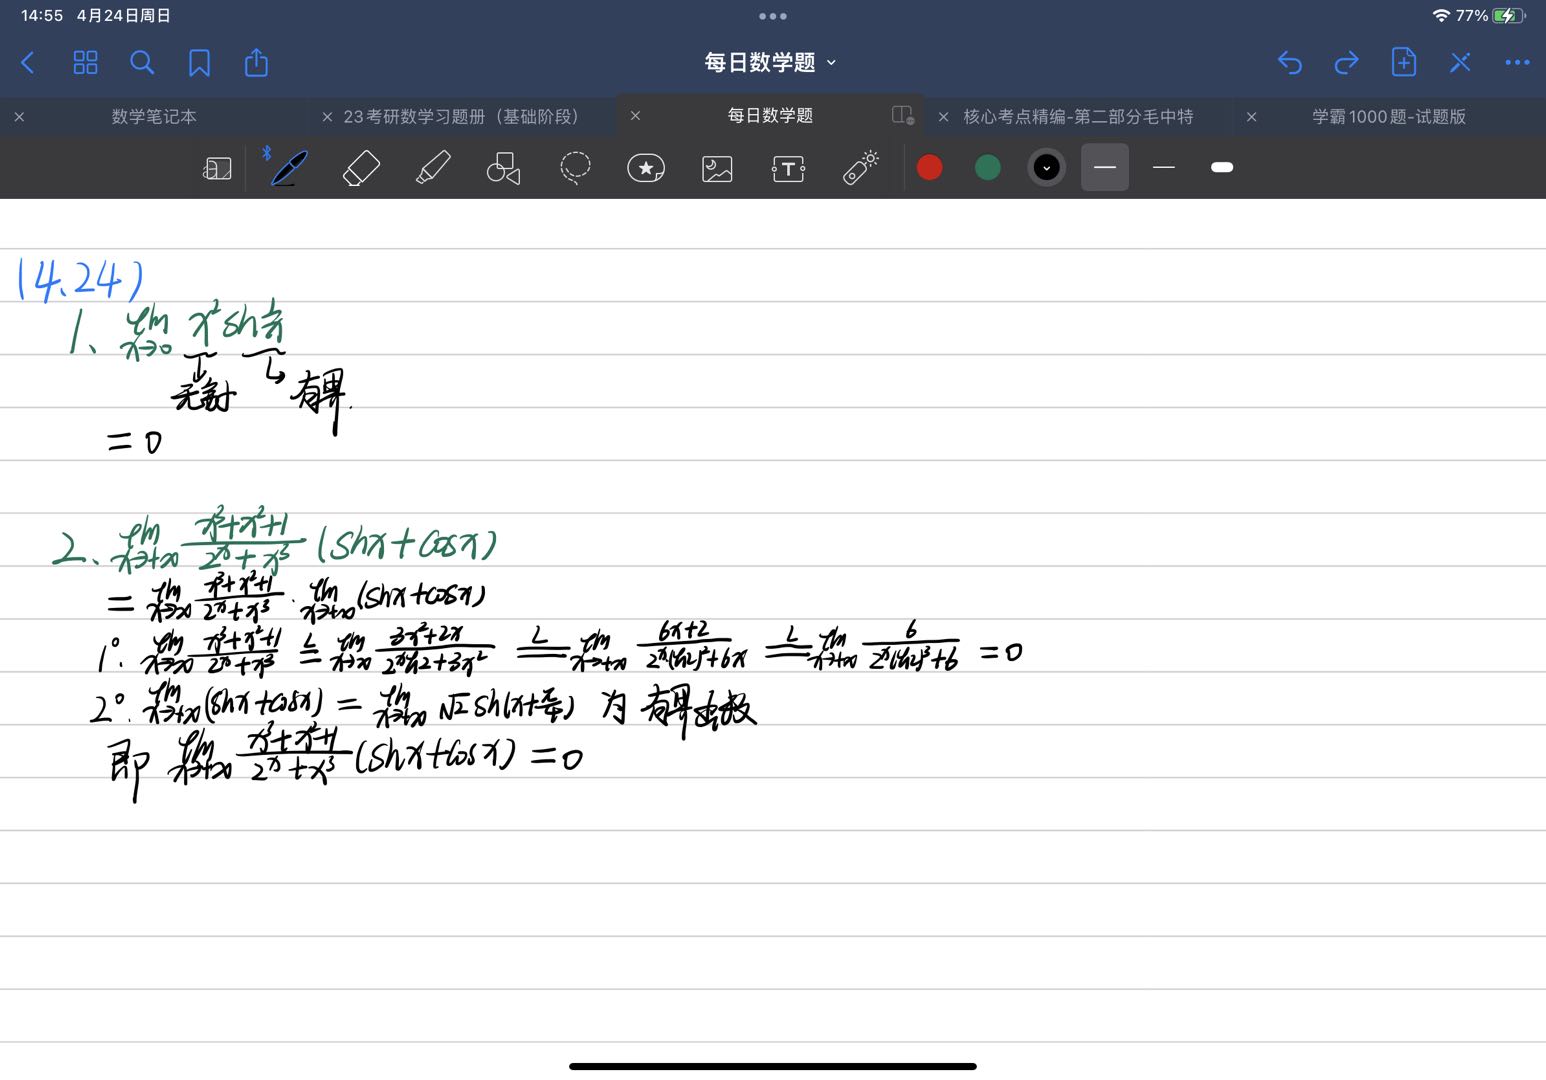 14:55 4月24日周日 77%
每日数学题
数学笔记本 23考研数学习题册（基础阶段） 每日数学题 核心考点精编-第二部分毛中特 学霸1000题-试题版
(4.24)
1、lim x→0 x² sin 1/x
无穷小 有界.
= 0
2、lim x→+∞ (x³+x²+1)/(2ˣ+x³) (sinx+cosx)
= lim x→+∞ (x³+x²+1)/(2ˣ+x³) · lim x→+∞ (sinx+cosx)
1°. lim x→+∞ (x³+x²+1)/(2ˣ+x³) =L= lim x→+∞ (3x²+2x)/(2ˣln2+3x²) =L= lim x→+∞ (6x+2)/(2ˣ(ln2)²+6x) =L= lim x→+∞ 6/(2ˣ(ln2)³+6) = 0
2°. lim x→+∞ (sinx+cosx) = lim x→+∞ √2 sin(x+π/4) 为 有界函数
即 lim x→+∞ (x³+x²+1)/(2ˣ+x³) (sinx+cosx) = 0